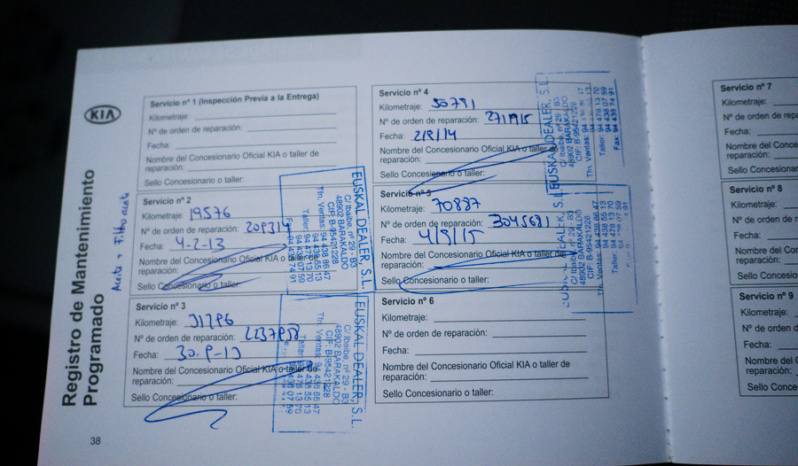 KIA
Registro de Mantenimiento
Programado
Servicio nº 1 (Inspección Previa a la Entrega)
Kilometraje:
Nº de orden de reparación:
Fecha:
Nombre del Concesionario Oficial KIA o taller de
reparación:
Sello Concesionario o taller:
Servicio nº 2
Kilometraje: 19576
Nº de orden de reparación:
Fecha: 4-2-13
Nombre del Concesionario Oficial KIA o taller de
reparación:
Sello Concesionario o taller:
EUSKAL DEALER, S.L.
C/ Ibaibe, nº 29 - B3
48902 BARAKALDO
CIF: B-95421228
Tfn. Ventas: 94 438 86 47
Servicio nº 3
Kilometraje:
Nº de orden de reparación:
Fecha:
Nombre del Concesionario Oficial KIA o taller de
reparación:
Sello Concesionario o taller:
EUSKAL DEALER, S.L.
C/ Ibaibe, nº 29 - B3
48902 BARAKALDO
CIF: B-95421228
Tfn. Ventas: 94 438 86 47
38
Servicio nº 4
Kilometraje: 50791
Nº de orden de reparación:
Fecha: 2/8/14
Nombre del Concesionario Oficial KIA o taller de
reparación:
Sello Concesionario o taller:
EUSKAL DEALER, S.L.
C/ Ibaibe, nº 29 - B3
48902 BARAKALDO
CIF: B-95421228
Servicio nº 5
Kilometraje: 70887
Nº de orden de reparación: 3045681
Fecha: 4/9/15
Nombre del Concesionario Oficial KIA o taller de
reparación:
Sello Concesionario o taller:
Servicio nº 6
Kilometraje:
Nº de orden de reparación:
Fecha:
Nombre del Concesionario Oficial KIA o taller de
reparación:
Sello Concesionario o taller:
Servicio nº 7
Kilometraje:
Nº de orden de repa
Fecha:
Nombre del Conces
reparación:
Sello Concesionario
Servicio nº 8
Kilometraje:
Nº de orden de r
Fecha:
Nombre del Con
reparación:
Sello Concesio
Servicio nº 9
Kilometraje:
Nº de orden d
Fecha:
Nombre del C
reparación:
Sello Conce